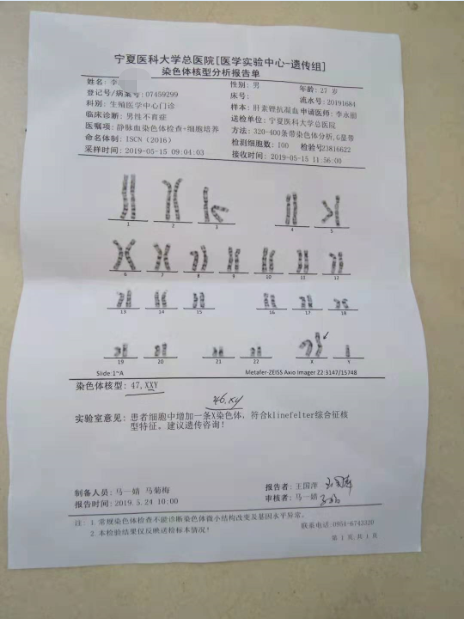 宁夏医科大学总医院[医学实验中心-遗传组]
染色体核型分析报告单
姓名：李 性别：男 年龄：27 岁
登记号/病案号：07459299 床号： 流水号：20191684
科别：生殖医学中心门诊 样本：肝素锂抗凝血 申请医师：李永丽
临床诊断：男性不育症 送检单位：宁夏医科大学总医院
医嘱项：静脉血染色体检查+细胞培养 方法：320-400条带染色体分析,G显带
命名体制：ISCN (2016) 检测细胞数：100 检验号
采样时间：2019-05-15 09:04:03 接收时间：2019-05-15 11:56:00
1 2 3 4 5
6 7 8 9 10 11 12
13 14 15 16 17 18
19 20 21 22 X Y
Slide:1~A Metafer-ZEISS Axio Imager Z2:5147/15748
染色体核型：47,XXY
46,xy
实验室意见：患者细胞中增加一条X染色体，符合klinefelter综合征核
型特征。建议遗传咨询！
制备人员：马一婧 马菊梅 报告者：王国萍
报告时间：2019.5.24 10:00 审核者：马一婧
注：1.常规染色体检查不能诊断染色体微小结构改变及基因水平异常。
2.本检验结果仅反映送检标本情况！ 联系电话:0951-6743320
第 1 页,共 1 页